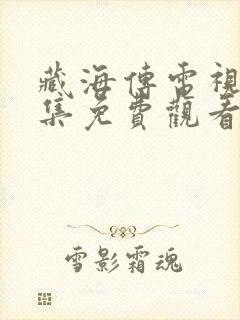 藏海傳電視
集免費觀看
雪影霜魂